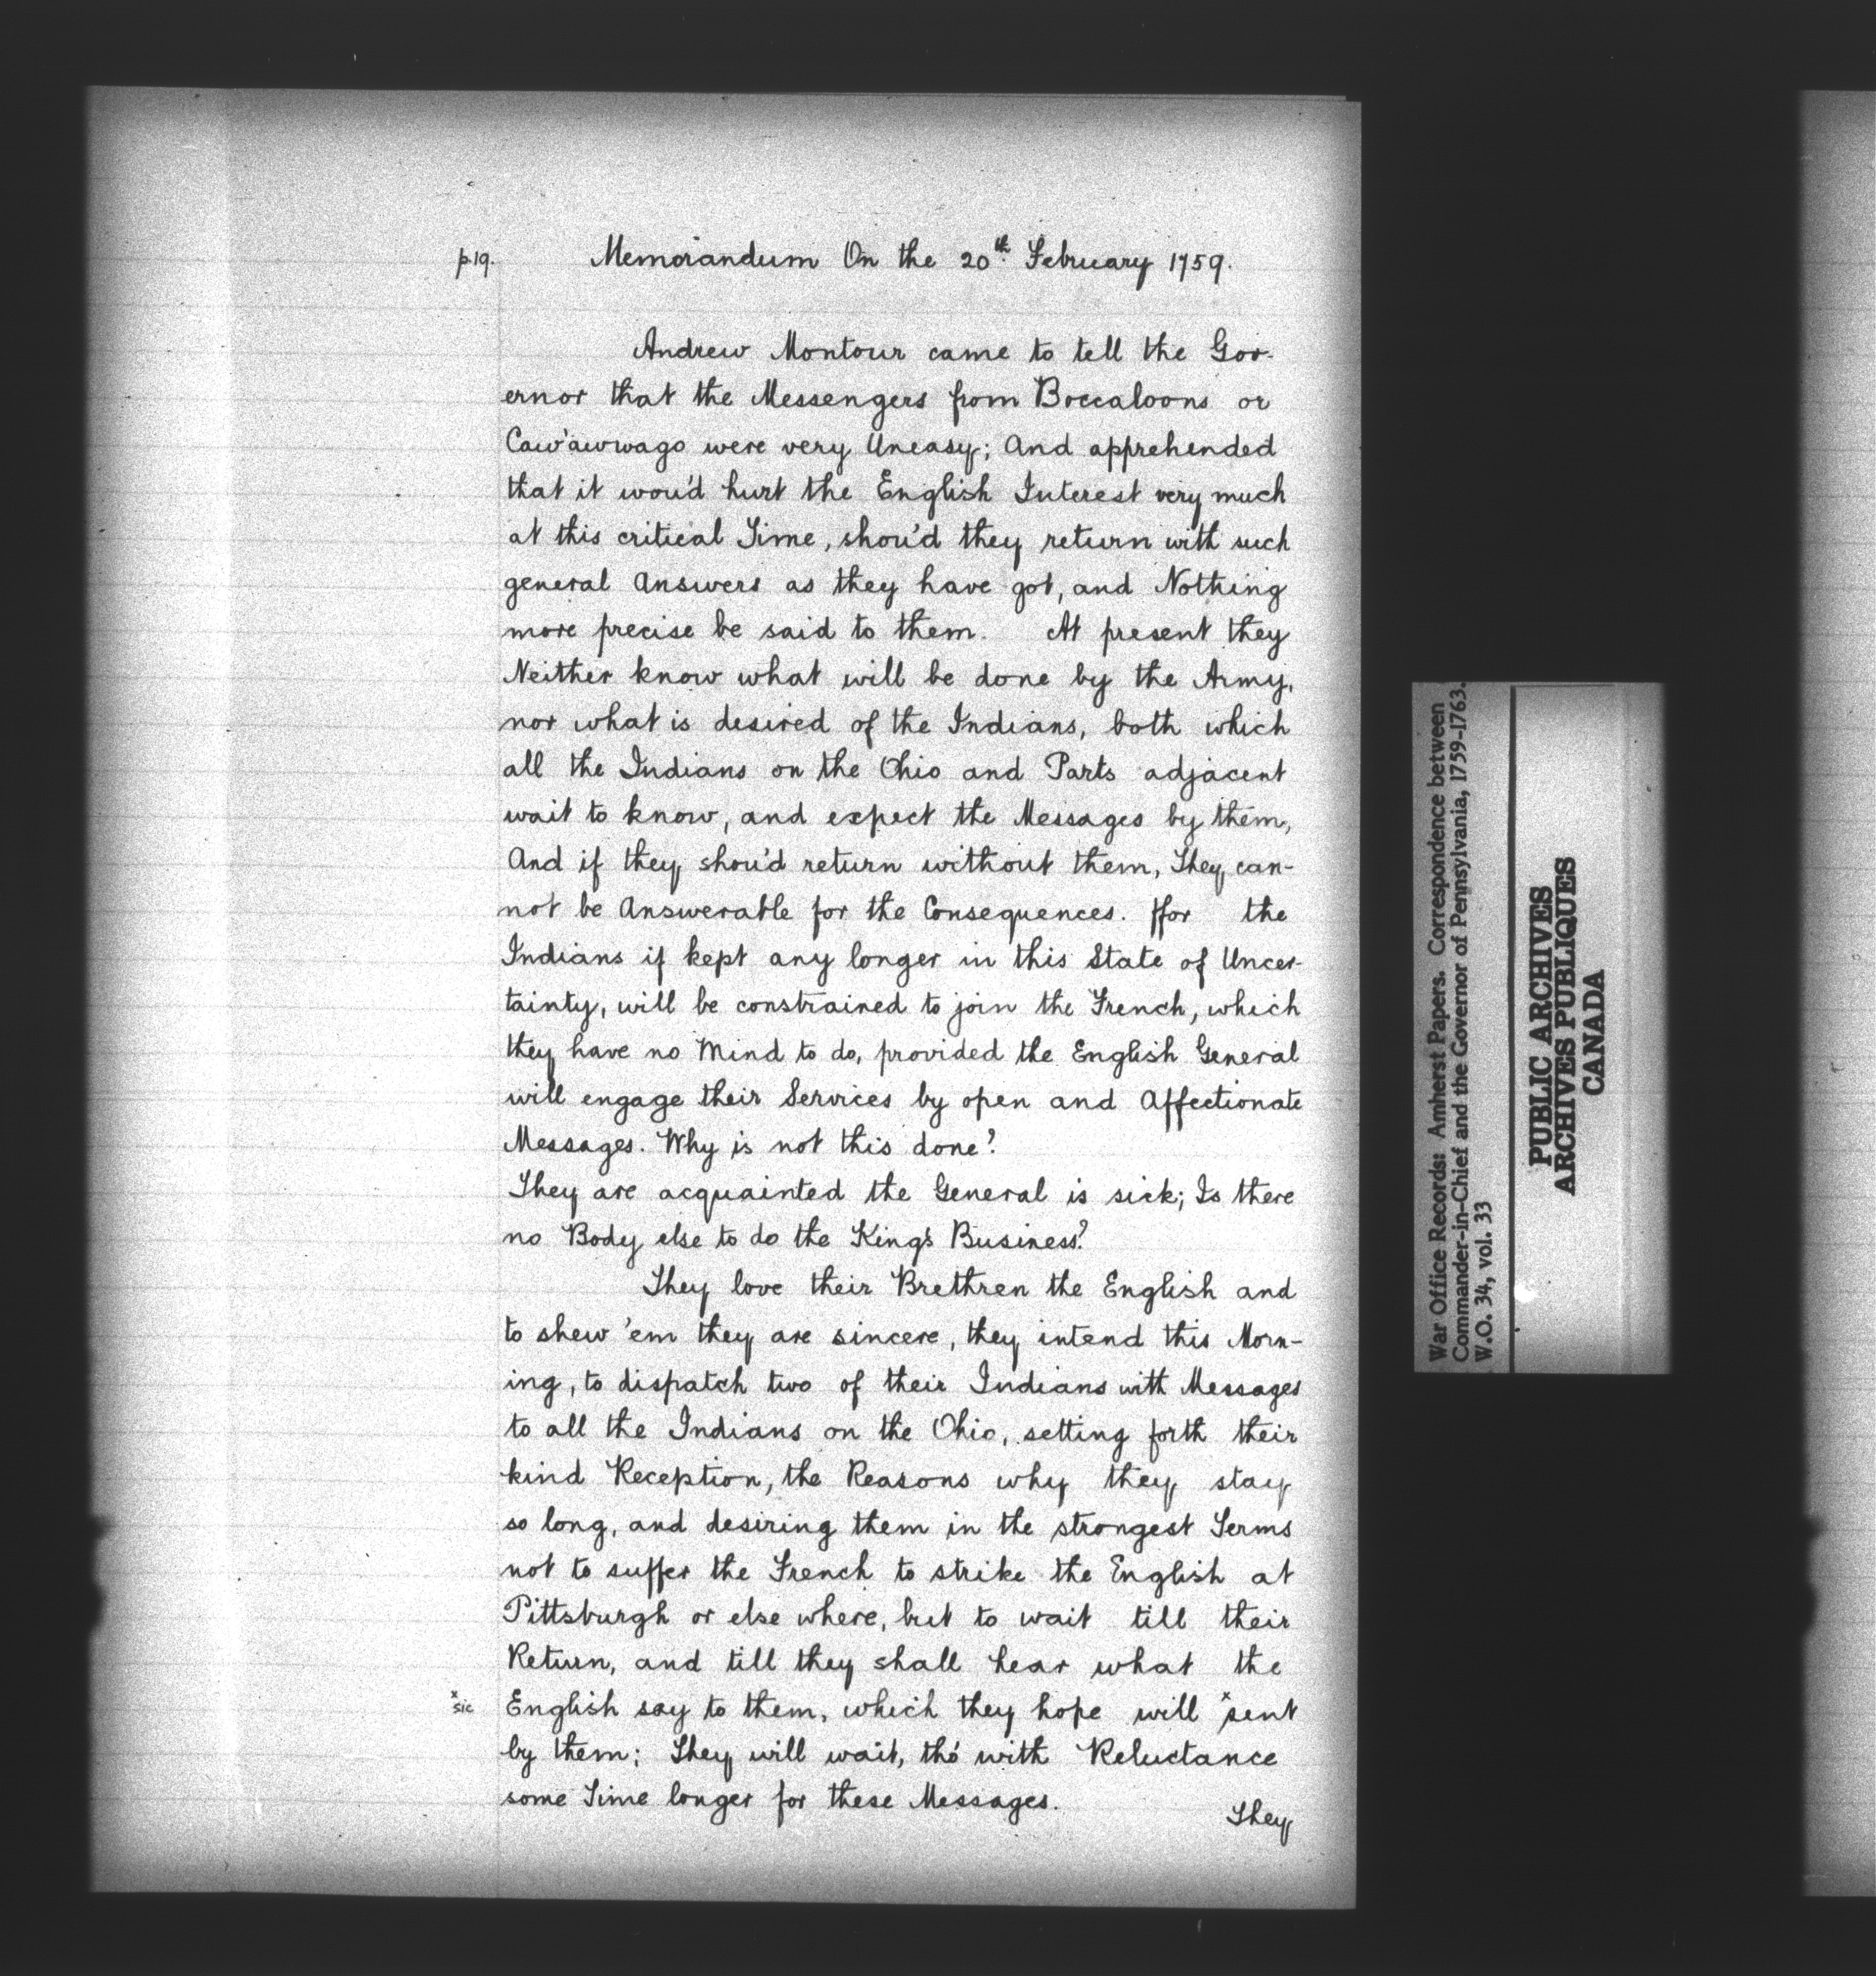 p.19. Memorandum On the 20th. February 1759.
Andrew Montour came to tell the Gov-
ernor that the Messengers from Boccaloons or
Caw'awwago were very Uneasy; And apprehended
that it wou'd hurt the English Interest very much
at this critical Time, shou'd they return with such
general Answers as they have got, and Nothing
more precise be said to them. At present they
Neither know what will be done by the Army,
nor what is desired of the Indians, both which
all the Indians on the Ohio and Parts adjacent
wait to know, and expect the Messages by them,
And if they shou'd return without them, They can-
not be Answerable for the Consequences. ffor the
Indians if kept any longer in this State of Uncer-
tainty, will be constrained to join the French, which
they have no Mind to do, provided the English General
will engage their Services by open and Affectionate
Messages. Why is not this done?
They are acquainted the General is sick; Is there
no Body else to do the King's Business?
They love their Brethren the English and
to shew 'em they are sincere, they intend this Morn-
ing, to dispatch two of their Indians with Messages
to all the Indians on the Ohio, setting forth their
kind Reception, the Reasons why they stay
so long, and desiring them in the strongest Terms
not to suffer the French to strike the English at
Pittsburgh or else where, but to wait till their
Return, and till they shall hear what the
x sic English say to them, which they hope will x sent
by them; They will wait, tho' with Reluctance
some Time longer for these Messages.
They
War Office Records: Amherst Papers. Correspondence between
Commander-in-Chief and the Governor of Pennsylvania, 1759-1763.
W.O. 34, vol. 33
PUBLIC ARCHIVES
ARCHIVES PUBLIQUES
CANADA